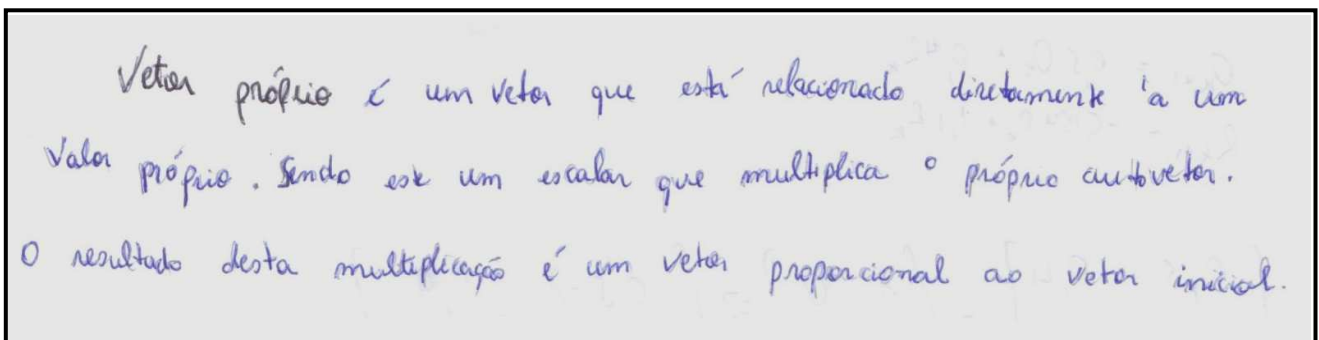 Vetor próprio é um vetor que está relacionado diretamente à um
Valor próprio. Sendo este um escalar que multiplica o próprio autovetor.
O resultado desta multiplicação é um vetor proporcional ao vetor inicial.